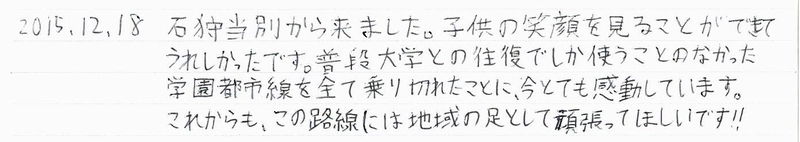 2015.12.18 石狩当別から来ました。子供の笑顔を見ることができて
うれしかったです。普段大学との往復でしか使うことのなかった
学園都市線を全て乗り切れたことに、今とても感動しています。
これからも、この路線には地域の足として頑張ってほしいです!!